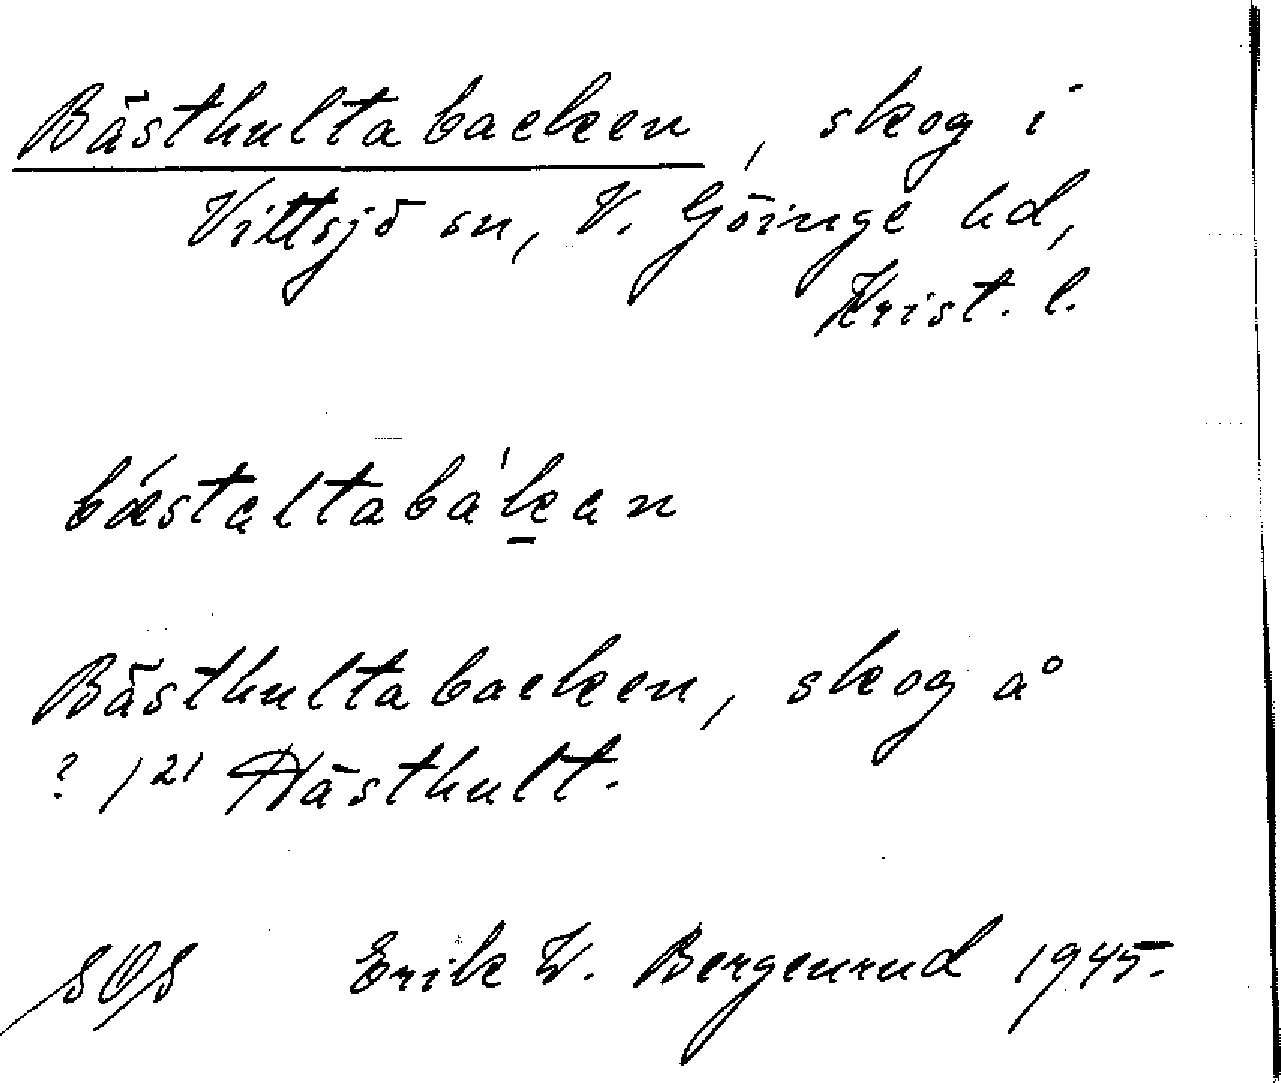 Bästhultabacken, skog i
Vittsjö sn, V. Göinge hd,
Krist. l.
bǽstaltabák̠an
Bästhultabacken, skog å
? 1²¹ Hästhult.
SOS Erik W. Bergenrud 1945.